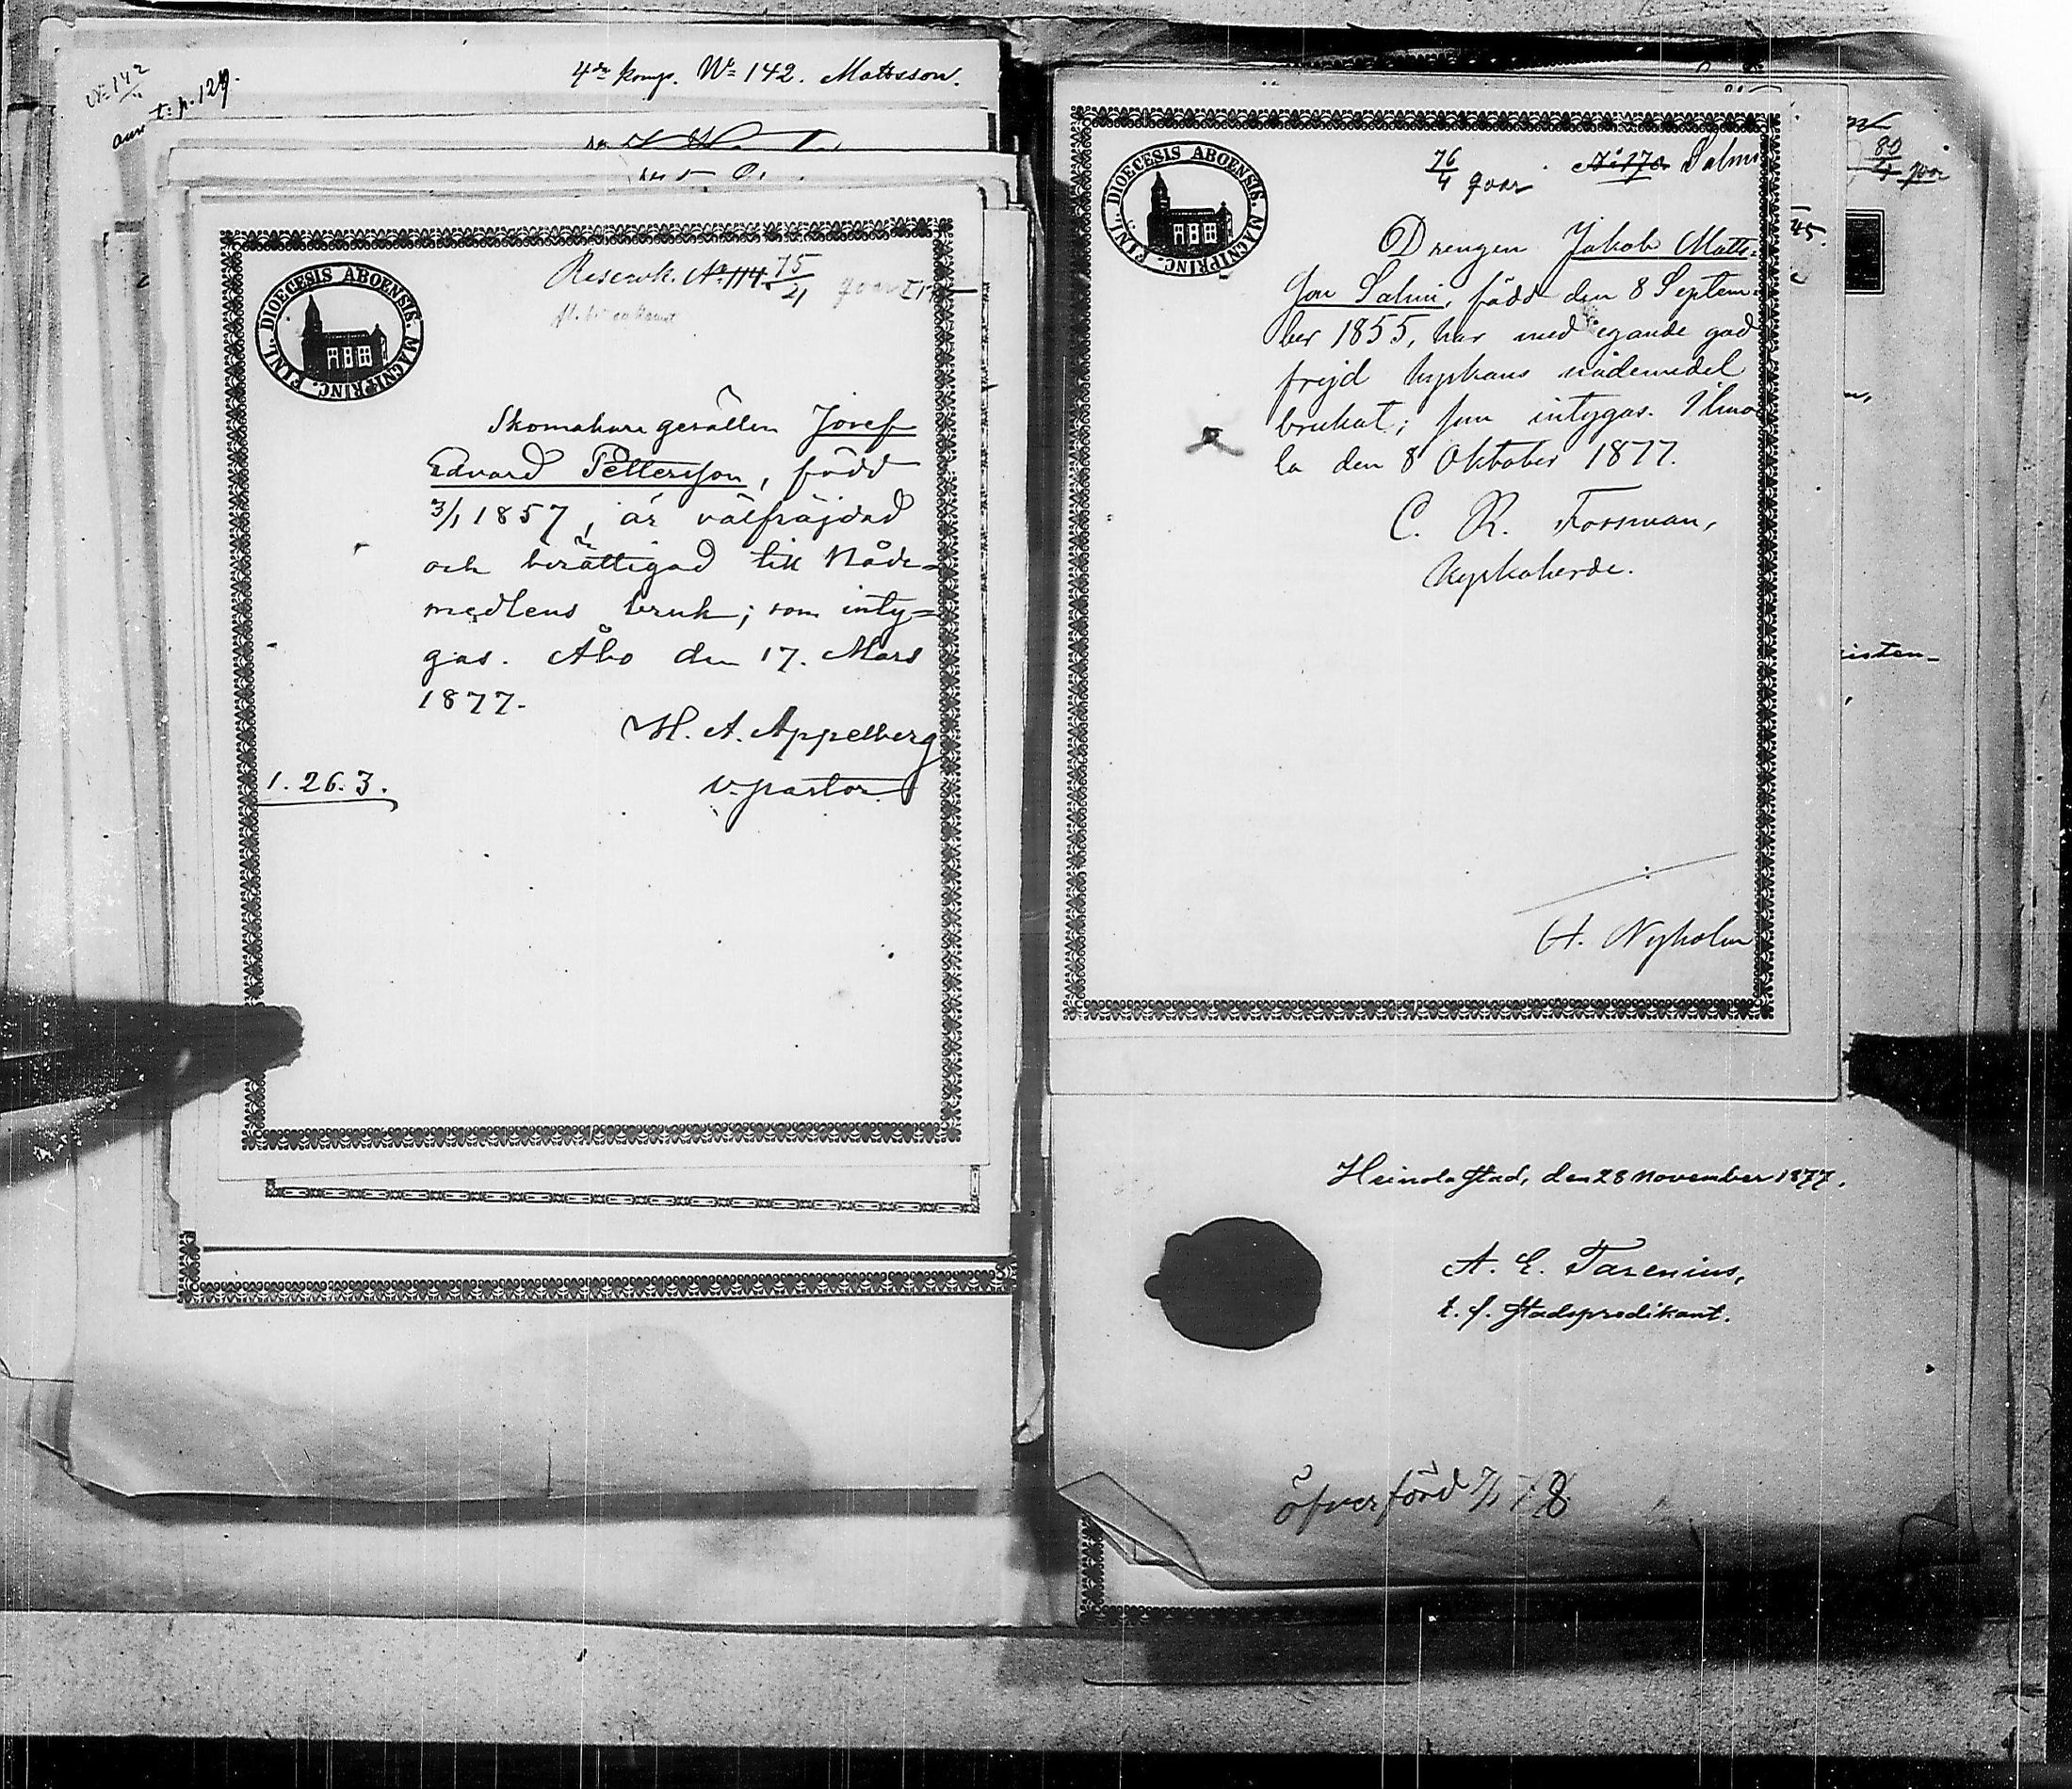 4de komp. No 142. Mattsson.
No 142
t: p. 129.
DIOECESIS ABOENSIS. MAGNI PRINC. FINL.
Reservk. No 114. 75/4 qvar
Skomakaregesällen Josef
Edvard Pettersson, född
3/1 1857, är välfräjdad
och berättigad till Nåde=
medlens bruk; som inty=
gas. Åbo den 17. Mars
1877.
H. A. Appelberg
v. pastor.
1. 26. 3.
DIOECESIS ABOENSIS. MAGNI PRINC. FINL.
76/4 qvar No 170. Salmi
Drengen Jakob Matts=
son Salmi, född den 8 Septem=
ber 1855, har med egande god
frejd kyrkans nådemedel
brukat; som intygas. Ilmo
la den 8 Oktober 1877.
C. R. Forsman,
Kyrkoherde.
A. Nyholm
80/4 qvar
45.
isten-
Heinola Stad, den 28 November 1877.
A. E. Tarenius,
t. f. Stadspredikant.
öfverförd 7/1 78